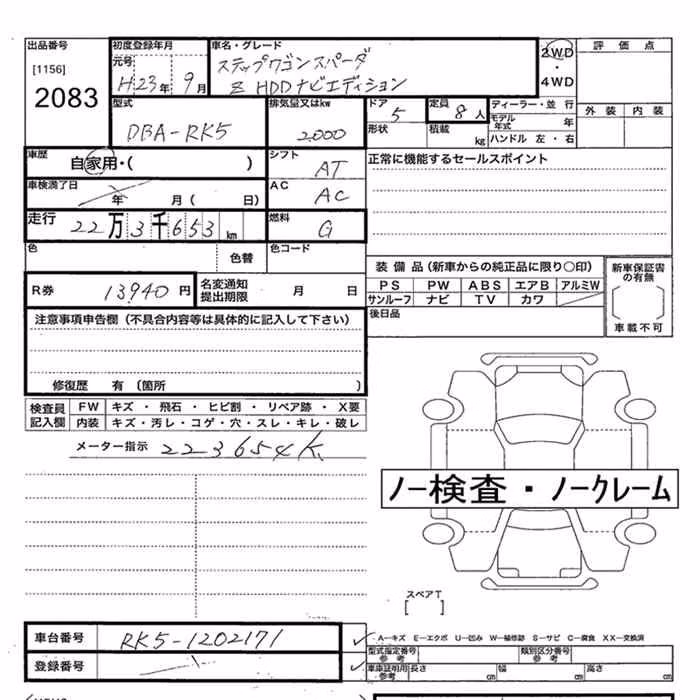 出品番号
[1156]
2083
初度登録年月
元号
H23年 9月
車名・グレード
ステップワゴンスパーダ
Z HDDナビエディション
2WD
・
4WD
評価点
外装 内装
型式
DBA-RK5
排気量又はkw
2,000
ドア
5
形状
定員
8人
積載
kg
ディーラー・並行
モデル年式 年
ハンドル 左・右
車歴
自家用・( )
シフト
AT
正常に機能するセールスポイント
車検満了日
年 月( 日)
AC
AC
走行
22万3千653km
燃料
G
色
色替
色コード
装備品(新車からの純正品に限り○印)
PS PW ABS エアB アルミW
サンルーフ ナビ TV カワ
後日品
新車保証書の有無
[ ]
車載不可
R券
13940円
名変通知提出期限
月 日
注意事項申告欄(不具合内容等は具体的に記入して下さい)
修復歴 有 〔箇所 〕
検査員記入欄
FW キズ・飛石・ヒビ割・リペア跡・X要
内装 キズ・汚レ・コゲ・穴・スレ・キレ・破レ
メーター指示 223654K
ノー検査・ノークレーム
スペアT
[ ]
車台番号
RK5-1202171
登録番号
A―キズ E―エクボ U―凹み W―補修跡 S―サビ C―腐食 XX―交換済
型式指定番号 参考
類別区分番号 参考
車庫証明用 参考
長さ cm 幅 cm 高さ cm